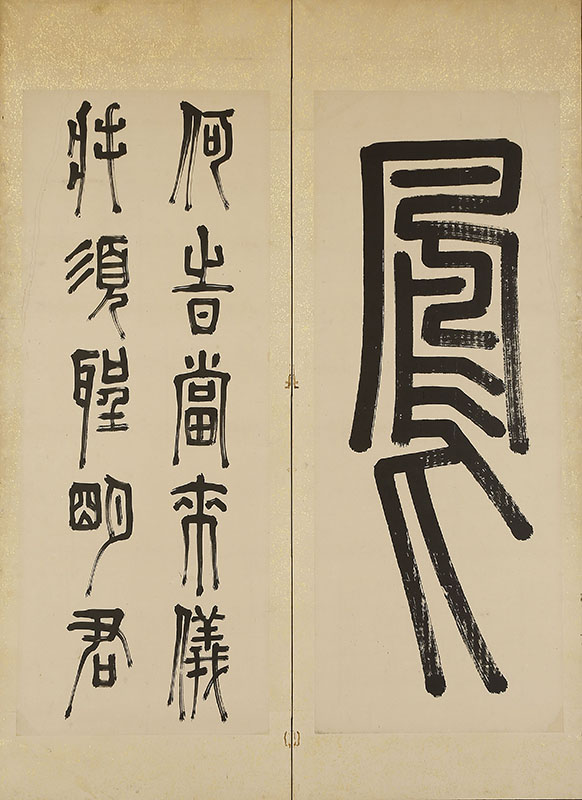 鳳
何旹當來儀
將須聖明君